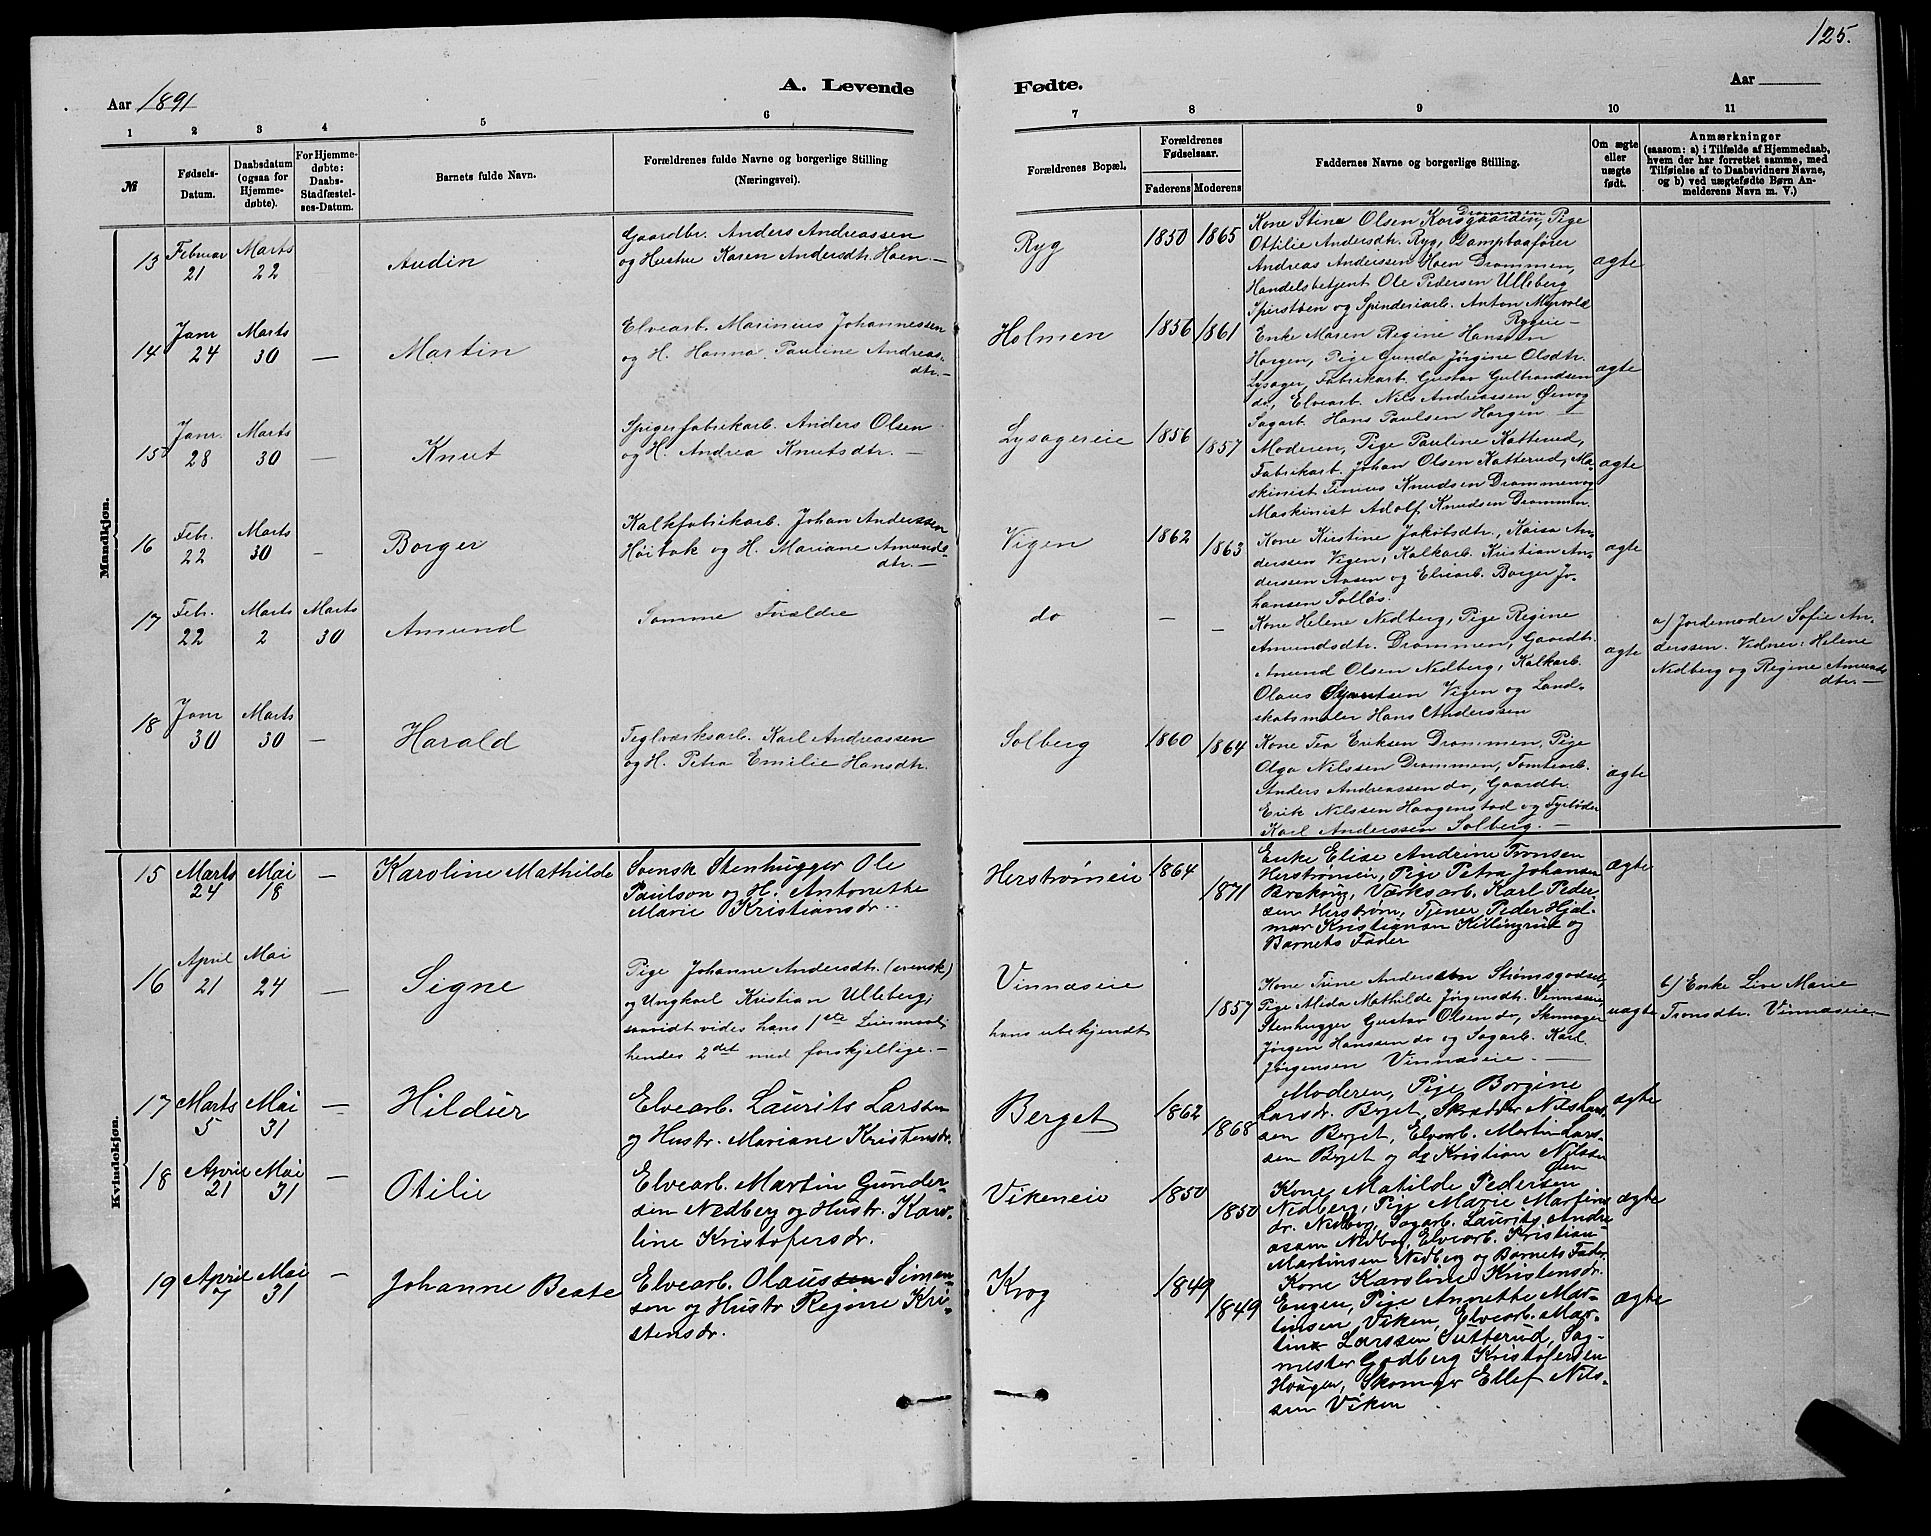 125.
Aar 1891
A. Levende Fødte.
Aar
1 2 3 4 5 6 7 8 9 10 11
№
Fødsels-Datum.
Daabsdatum (ogsaa for Hjemmedøbte).
For Hjemmedøbte: Daabs-Stadfæstelses-Datum.
Barnets fulde Navn.
Forældrenes fulde Navne og borgerlige Stilling
(Næringsvei).
Forældrenes Bopæl.
Forældrenes Fødselsaar.
Faderens Moderens
Faddernes Navne og borgerlige Stilling.
Om ægte eller uægte født.
Anmærkninger
(saasom: a) i Tilfælde af Hjemmedaab,
hvem der har forrettet samme, med
Tilføielse af to Daabsvidners Navne,
og b) ved uægtefødte Børn An-
melderens Navn m. V.)
Mandkjøn.
13 Februar 21 Marts 22 Audin
Gaardbr. Anders Andreassen
og Hustru Karen Andersdtr. Hoen.—
Ryg 1850 1865
Kone Stine Olsen Korsgaarden, Drammen, Pige
Ottilie Andersdtr. Ryg, Dampbaafører
Andreas Anderssen Hoen Drammen,
Handelsbetjent Ole Pedersen Ulleberg
og Spinderiarb. Anton Myrvold
ægte
14 Janr 24 Marts 30 — Martin
Elvearb. Marinius Johannessen
og H. Hanna Pauline Andreas-
dtr.—
Holmen 1856 1861
Enke Maren Regine Hanssen
Horgen, Pige Gunda Jørgine Olsdtr.
Lysager, Fabrikarb. Gustav Gulbrandsen
do, Elvearb. Nils Andreassen Øen og
Sagarb. Hans Paulsen Horgen —
ægte
15 Janr. 28 Marts 30 — Knut
Spigerfabrikarb. Anders Olsen
og H. Andrea Knutsdtr. —
Lysagereie 1856 1857
Moderen, Pige Pauline Katterud,
Fabrikarb. Johan Olsen Katterud, Ma-
skinist Tinius Knudsen Drammen og
Maskinist Adolf Knudsen Drammen
ægte
16 Febr. 22 Marts 30 — Borger
Kalkfabrikarb. Johan Anderssen
Høibak og H. Mariane Amunds-
dtr.—
Vigen 1862 1863
Kone Kirstine Jakobsdtr., Kaisa An-
derssen Vigen, Kalkarb. Kristian An-
derssen Aasen og Elvearb. Borger Jo-
hansen Sollös.
ægte
17 Febr. 22 Marts 2 Marts 30 Amund
Samme Foræeldre
do — —
Kone Helene Nedberg, Pige Regine
Amundsdtr. Drammen, Gaardbr.
Amund Olsen Nedberg, Kalkarb.
Olaus Syvertsen Vigen og Land-
skabsmaler Hans Anderssen
ægte
a) Jordemoder Sofie An-
derssen. Vidner: Helene
Nedberg og Regine Amunds
dtr.—
18 Janr 30 Marts 30 — Harald
Teglværksarb. Karl Andreassen
og H. Petra Emilie Hansdtr.
Solberg 1860 1864
Kone Tea Eriksen Drammen, Pige
Olga Nilssen Drammen, Tomtearb.
Anders Andreassen do, Gaardbr.
Erik Nilssen Haagenstad og Fyrbøder
Karl Anderssen Solberg.—
ægte
Kvindekjøn.
15 Marts 24 Mai 18 — Karoline Mathilde
Svensk Stenhugger Ole
Paulson og H. Antonethe
Marie Kristiansdr..
Herstrømeie 1864 1871
Enke Elise Andrine Tronsen
Herstrømeie, Pige Petra Johansen
Værksarb. Karl Peder
sen Herstrøm, Tjener Peder Hjal-
mar Kristiansen Killingrud og
Barnets Fader
ægte
16 April 21 Mai 24 — Signe
Pige Johanne Andersdtr. (svensk)
og Ungkarl Kristian Ulleberg,
saavidt vides hans 1ste Leiermaal,
hendes 2det med forskjellige.—
Vinnæseie
hans ubekjendt 1857
Kone Trine Anderssen Strømsgodset,
Pige Alida Mathilde Jørgensdtr. Vinnæseie,
Stenhugger Gustav Olsen do, Skomager
Jørgen Hanssen do og Sagarb. Karl
Jørgensen Vinnæseie. —
uægte
b) Enke Live Marie
Tronsdtr. Vinnæseie—
17 Marts 5 Mai 31 — Hildur
Elvearb. Laurits Larssen
og Hustr. Mariane Kristensdr.
Berget 1862 1868
Moderen, Pige Borgine
Larsdr. Berget, Skrædder Nils Lars-
sen Berget, Elvearb. Martin Lars-
sen Berget og do Kristian Nilssen
Øen
ægte
18 April 21 Mai 31 — Otilie
Elvearb. Martin Gunder-
sen Nedberg og Hustr. Karo-
line Kristofersdr.
Vikeneie 1850 1850
Kone Matilde Pedersen
Nedberg, Pige Marie Martins
dr. Nedberg, Sagarb. Laurits Andre
assen Nedberg, Elvearb. Kristian
Martinsen Nedberg og Barnets Fader
ægte
19 April 7 Mai 31 — Johanne Beate
Elvearb. Olaus Simen-
sen og Hustr Regine Kri-
stensdr.
Krog 1849 1849
Kone Karoline Kristensdr.
Engen, Pige Annette Mar-
tinsen Viken, Elvearb. Mar-
tin Larssen Sutterud, Sag-
mester Godberg Kristofersen
Haugen, Skomager Ellef Nils-
sen Viken
ægte